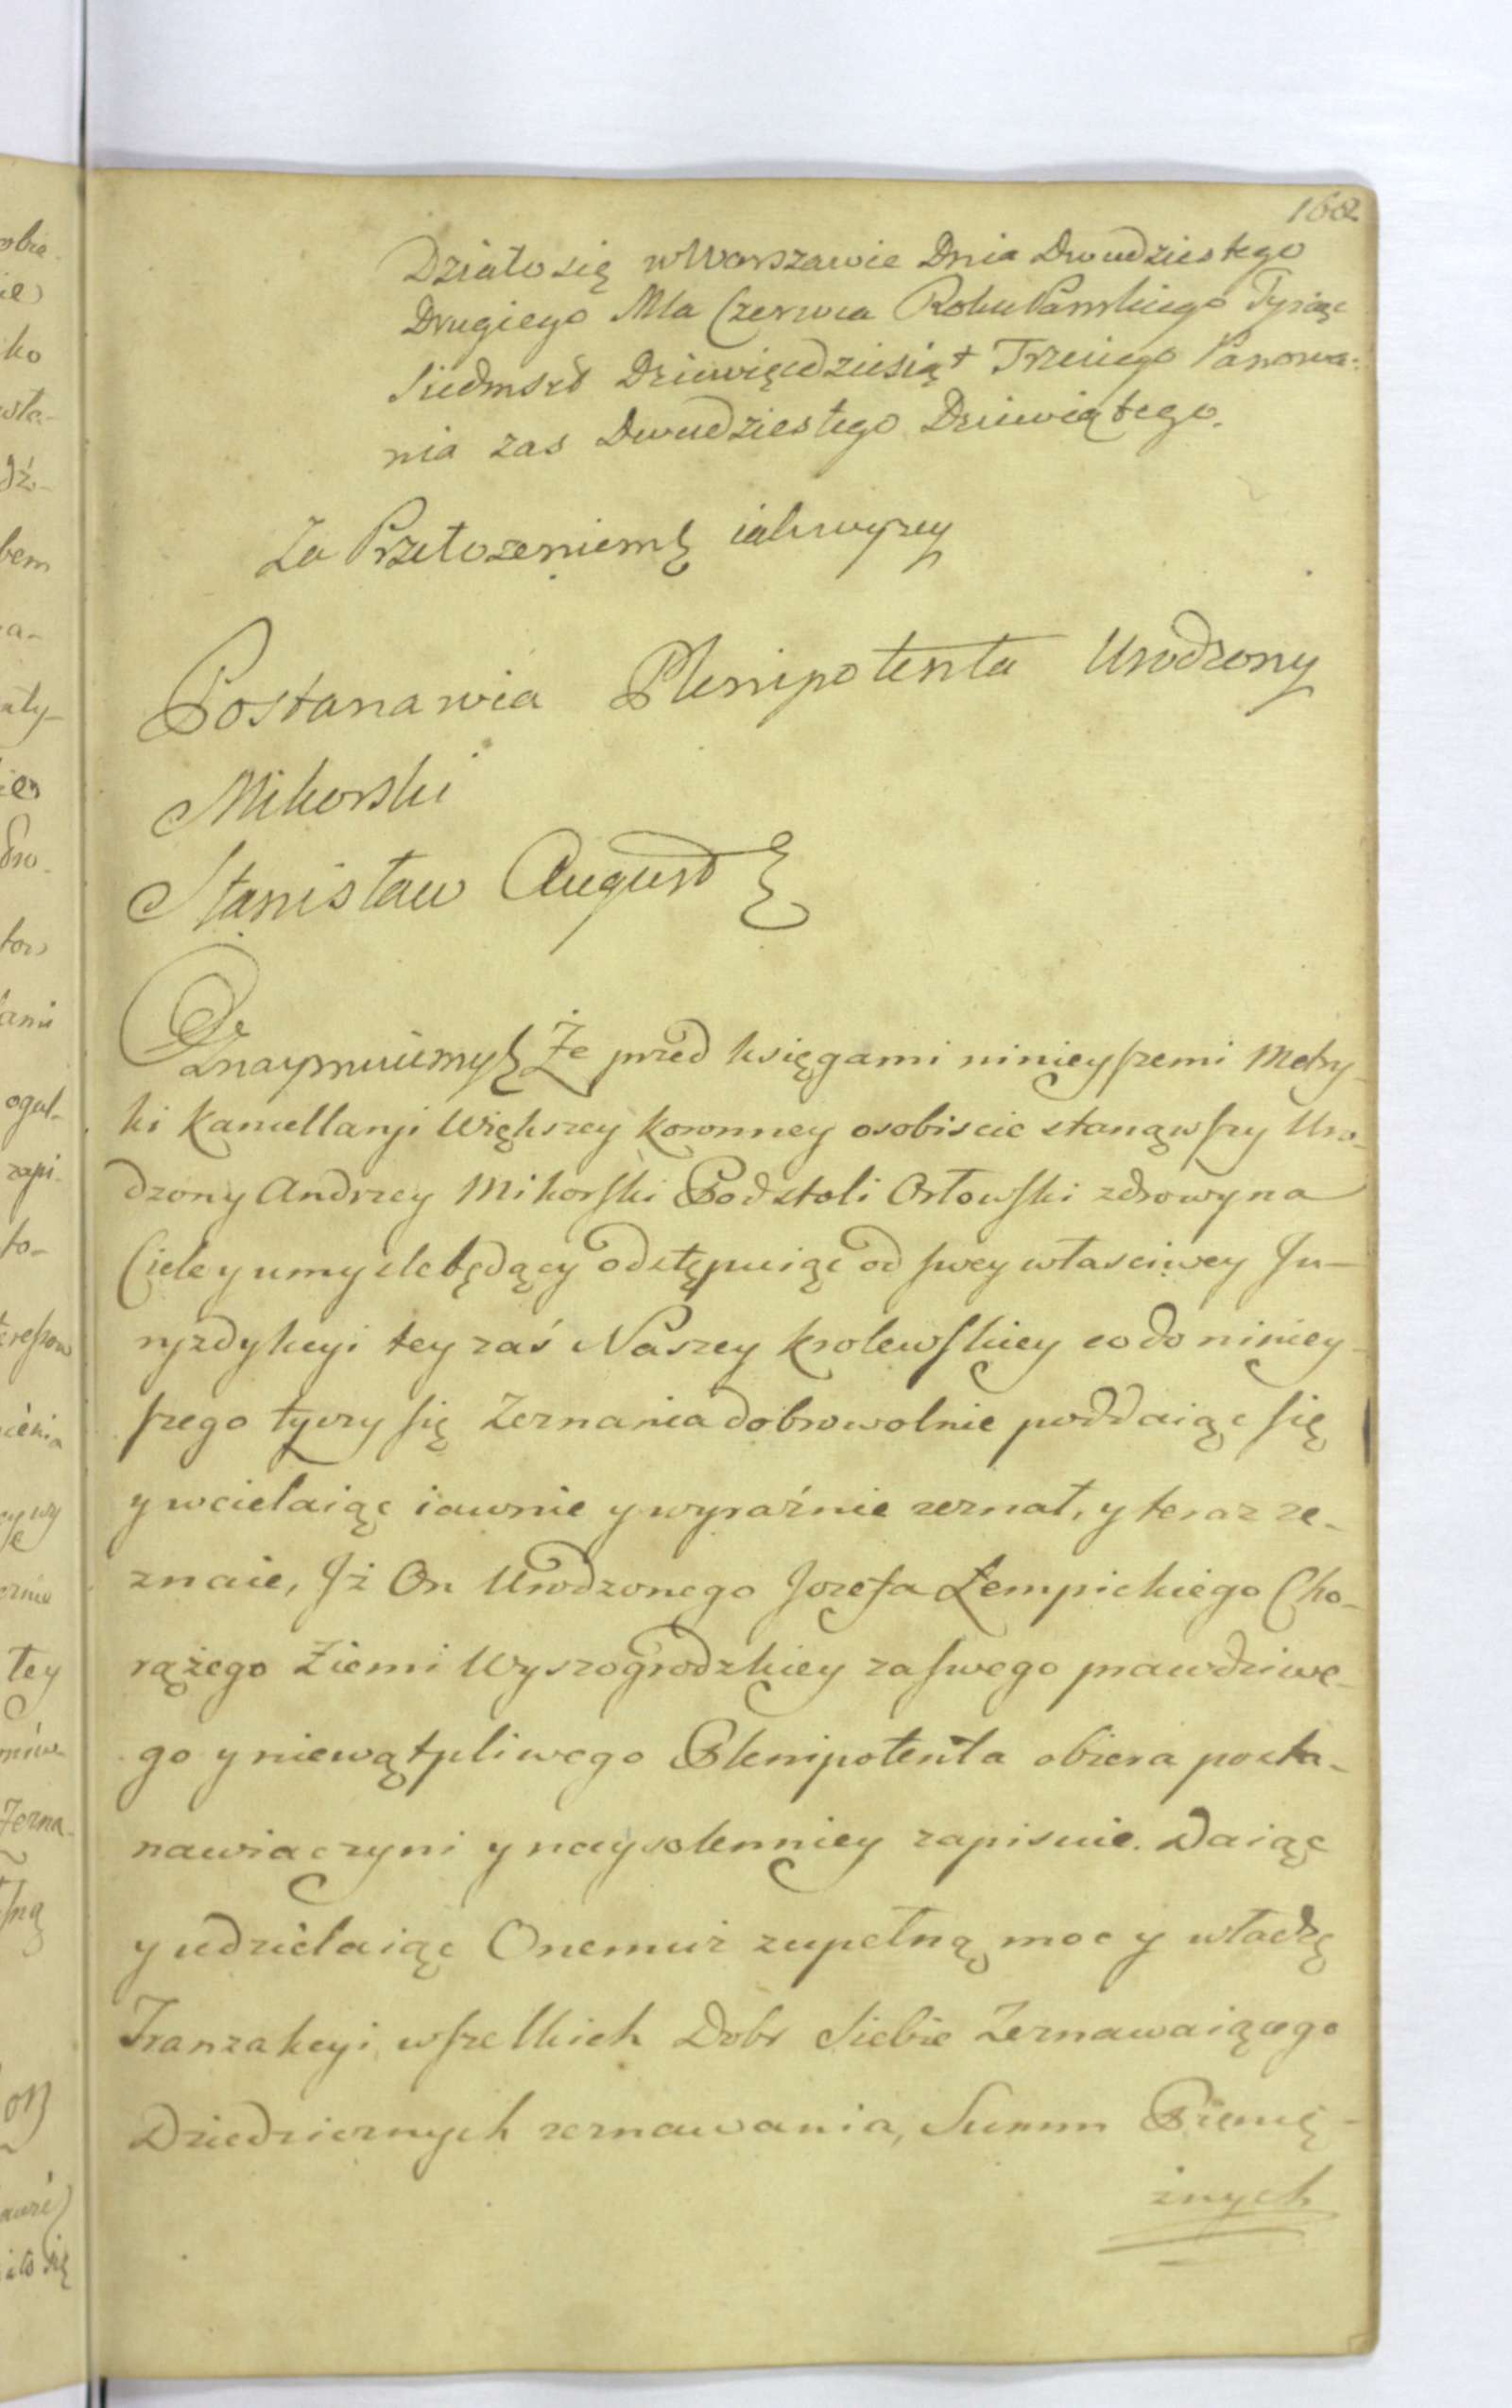 168
Działo się w Warszawie Dnia Dwudziestego
Drugiego Mca Czerwca Roku Pańskiego Tysiąc
Siedmset Dziewięćdziesiąt Trzeciego Panowa:
nia zas Dwudziestego Dziewiątego.
Za Przełożeniem iakwyzey
Postanawia Plenipotenta Urodzony
Mikorski
Stanisław August
Oznaymuiemy Że przed księgami ninieyszemi Metry-
ki Kancellaryi Większey Koronney osobiscie stanąwszy Uro-
dzony Andrzey Mikorski Podstoli Orłowski zdrowy na
Ciele y umysle będący odstępuiąc od swey własciwey Ju-
ryzdykcyi tey zaś Naszey Krolewskiey co do niniey-
szego tyczy się Zeznania dobrowolnie poddaiąc się
y wcielaiąc iawnie y wyraźnie zeznał, y teraz ze-
znaie, Jż On Urodzonego Jozefa Łempickiego Cho-
rążego Ziemi Wyszogrodzkiey za swego prawdziwe-
go y niewątpliwego Plenipotenta obiera posta-
nawia czyni y naysolenniey zapisuie. Daiąc
y udzielaiąc Onemuż zupełną moc y władzę
Tranzakcyi wszelkich Dobr Siebie Zeznawaiącego
Dziedzicznych zeznawania, Summ Pienię-
żnych